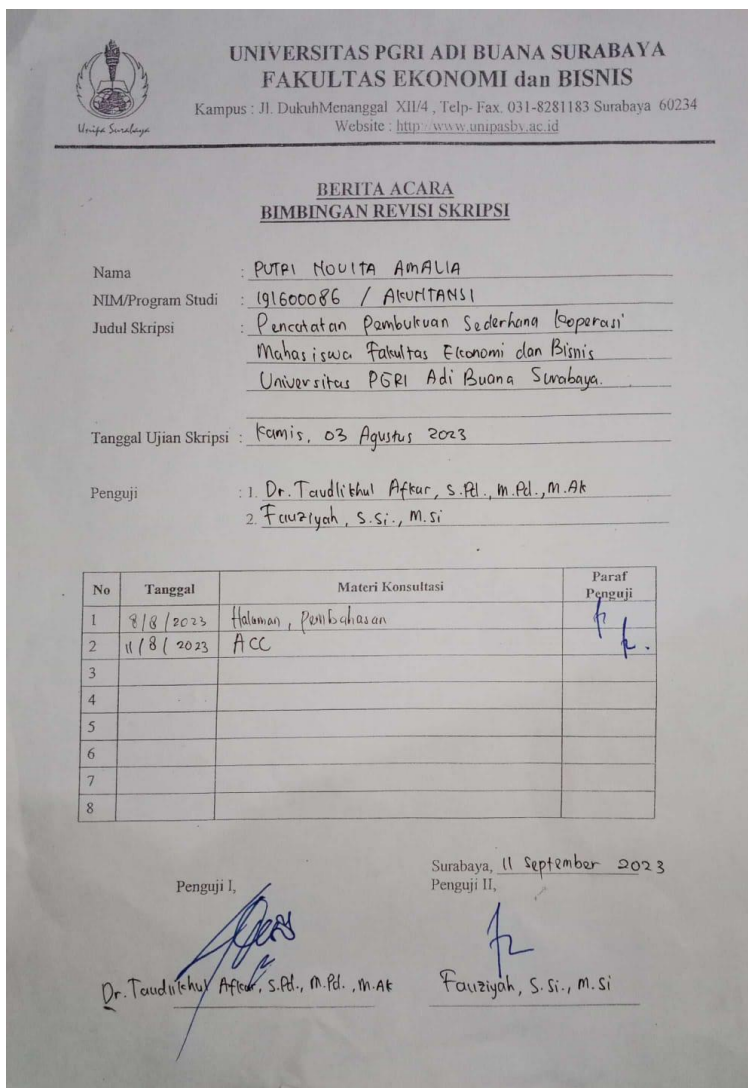 UNIVERSITAS PGRI ADI BUANA SURABAYA
FAKULTAS EKONOMI dan BISNIS
Kampus : Jl. DukuhMenanggal XII/4 , Telp- Fax. 031-8281183 Surabaya 60234
Website : http://www.unipasby.ac.id
Unipa Surabaya
BERITA ACARA
BIMBINGAN REVISI SKRIPSI
Nama : PUTRI NOVITA AMALIA
NIM/Program Studi : 191600086 / AKUNTANSI
Judul Skripsi : Pencatatan Pembukuan Sederhana Koperasi
Mahasiswa Fakultas Ekonomi dan Bisnis
Universitas PGRI Adi Buana Surabaya.
Tanggal Ujian Skripsi : Kamis, 03 Agustus 2023
Penguji : 1. Dr. Taudlikhul Afkar, S.Pd., M.Pd., M.Ak
2. Fauziyah, S.Si., M.Si
No Tanggal Materi Konsultasi Paraf Penguji
1 8/8/2023 Halaman, Pembahasan
2 11/8/2023 ACC
3
4
5
6
7
8
Surabaya, 11 September 2023
Penguji I, Penguji II,
Dr. Taudlikhul Afkar, S.Pd., M.Pd., M.Ak Fauziyah, S.Si., M.Si